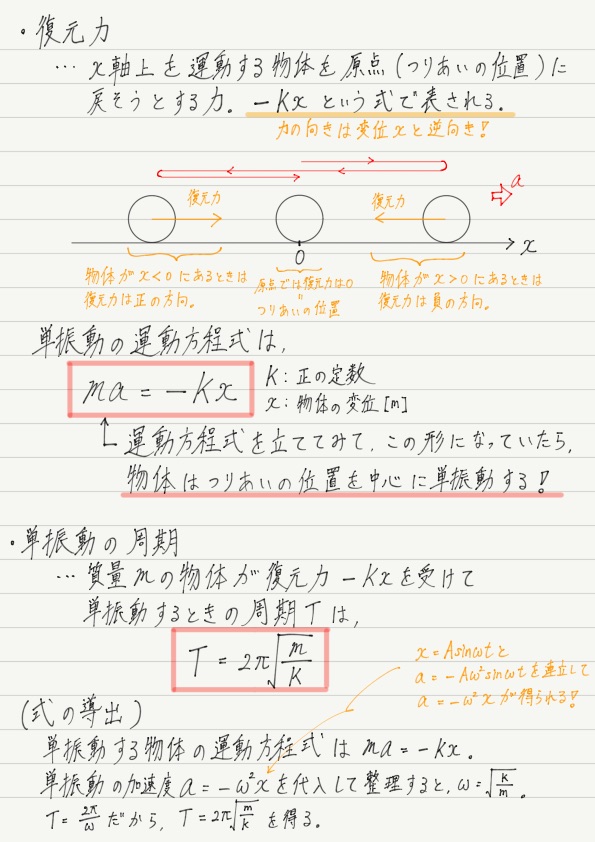 ・復元力
… x軸上を運動する物体を原点(つりあいの位置)に
戻そうとする力。−Kxという式で表される。
力の向きは変位xと逆向き!
a
復元力
復元力
x
0
物体がx<0にあるときは
復元力は正の方向。
原点では復元力は0
=
つりあいの位置
物体がx>0にあるときは
復元力は負の方向。
単振動の運動方程式は,
ma = −Kx
K:正の定数
x:物体の変位[m]
運動方程式を立ててみて,この形になっていたら,
物体はつりあいの位置を中心に単振動する!
・単振動の周期
… 質量mの物体が復元力−Kxを受けて
単振動するときの周期Tは,
T = 2π√(m/K)
x=Asinωtと
a=−Aω²sinωtを連立して
a=−ω²xが得られる!
(式の導出)
単振動する物体の運動方程式はma=−kx。
単振動の加速度a=−ω²xを代入して整理すると,ω=√(k/m)。
T=2π/ωだから,T=2π√(m/k)を得る。